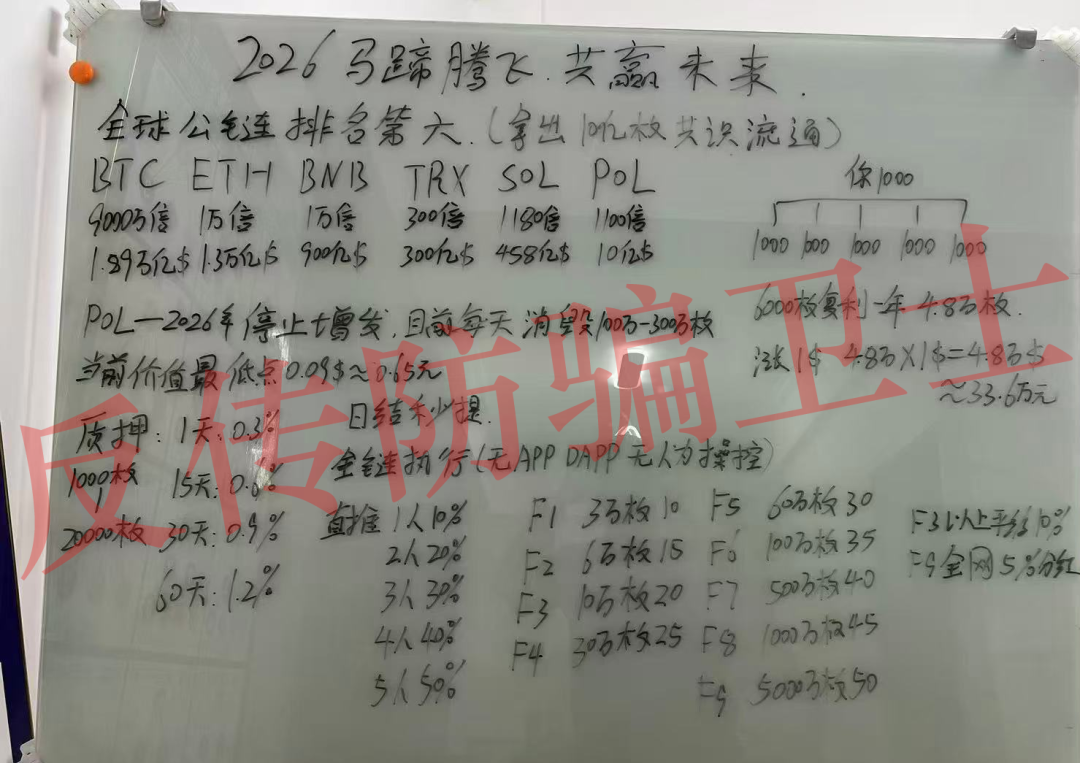 2026马蹄腾飞.共赢未来.
全球公链排名第六.(拿出10亿枚共识流通)
BTC ETH BNB TRX SOL POL
9000万倍 1万倍 1万倍 300倍 1180倍 1100倍
1.89万亿$ 1.3万亿$ 900亿$ 300亿$ 458亿$ 10亿$
你1000
1000 1000 1000 1000 1000
6000枚复利一年4.8万枚.
涨1$ 4.8万X1$=4.8万$
≈33.6万元
POL—2026年停止增发,目前每天消毁100万-300万枚
当前价值最低点0.09$≈0.65元
质押: 1天:0.3%
1000枚 15天:0.6%
20000枚 30天:0.9%
60天:1.2%
日结秒提.
全链执行(无APP DAPP 无人为操控)
直推 1人10%
2人20%
3人30%
4人40%
5人50%
F1 3万枚10
F2 6万枚15
F3 10万枚20
F4 30万枚25
F5 60万枚30
F6 100万枚35
F7 500万枚40
F8 1000万枚45
F9 5000万枚50
F3以上平级10%
F9全网5%分红
反传防骗卫士